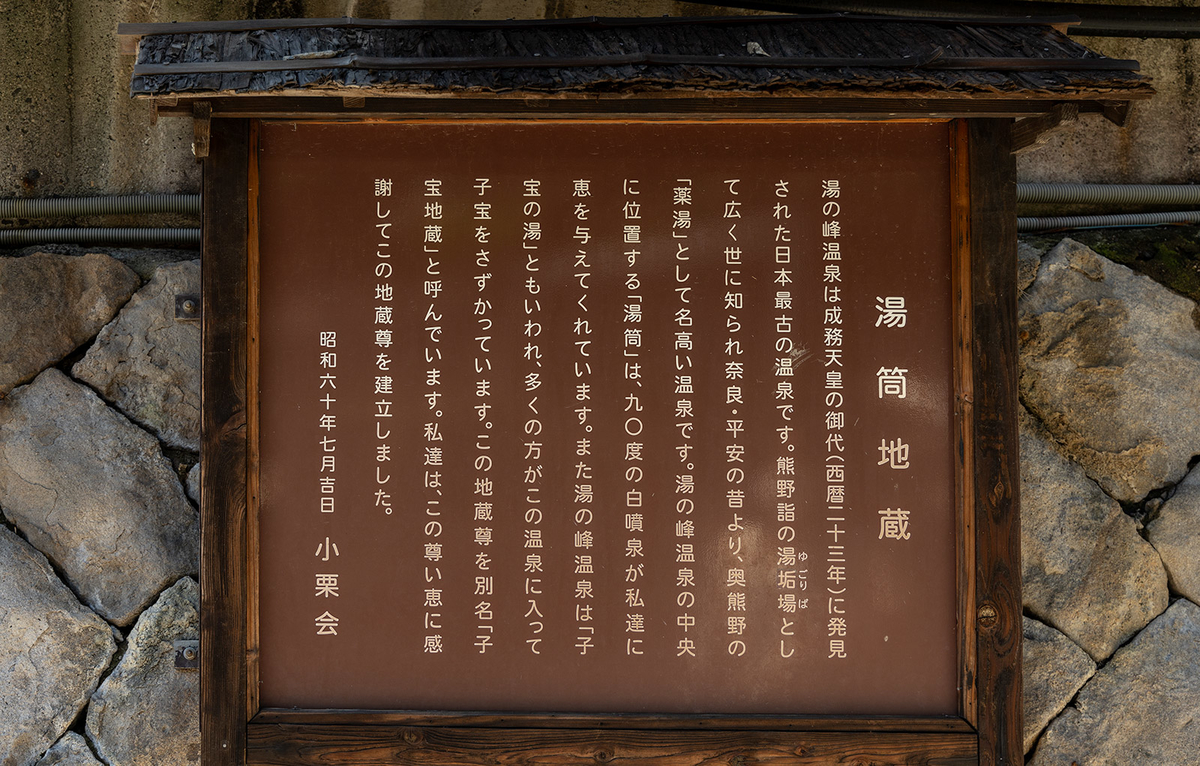 湯筒地蔵
湯の峰温泉は成務天皇の御代（西暦二十三年）に発見
された日本最古の温泉です。熊野詣の湯垢場とし
ゆごりば
て広く世に知られ奈良・平安の昔より、奥熊野の
「薬湯」として名高い温泉です。湯の峰温泉の中央
に位置する「湯筒」は、九〇度の白噴泉が私達に
恵を与えてくれています。また湯の峰温泉は「子
宝の湯」ともいわれ、多くの方がこの温泉に入って
子宝をさずかっています。この地蔵尊を別名「子
宝地蔵」と呼んでいます。私達は、この尊い恵に感
謝してこの地蔵尊を建立しました。
昭和六十年七月吉日 小栗会